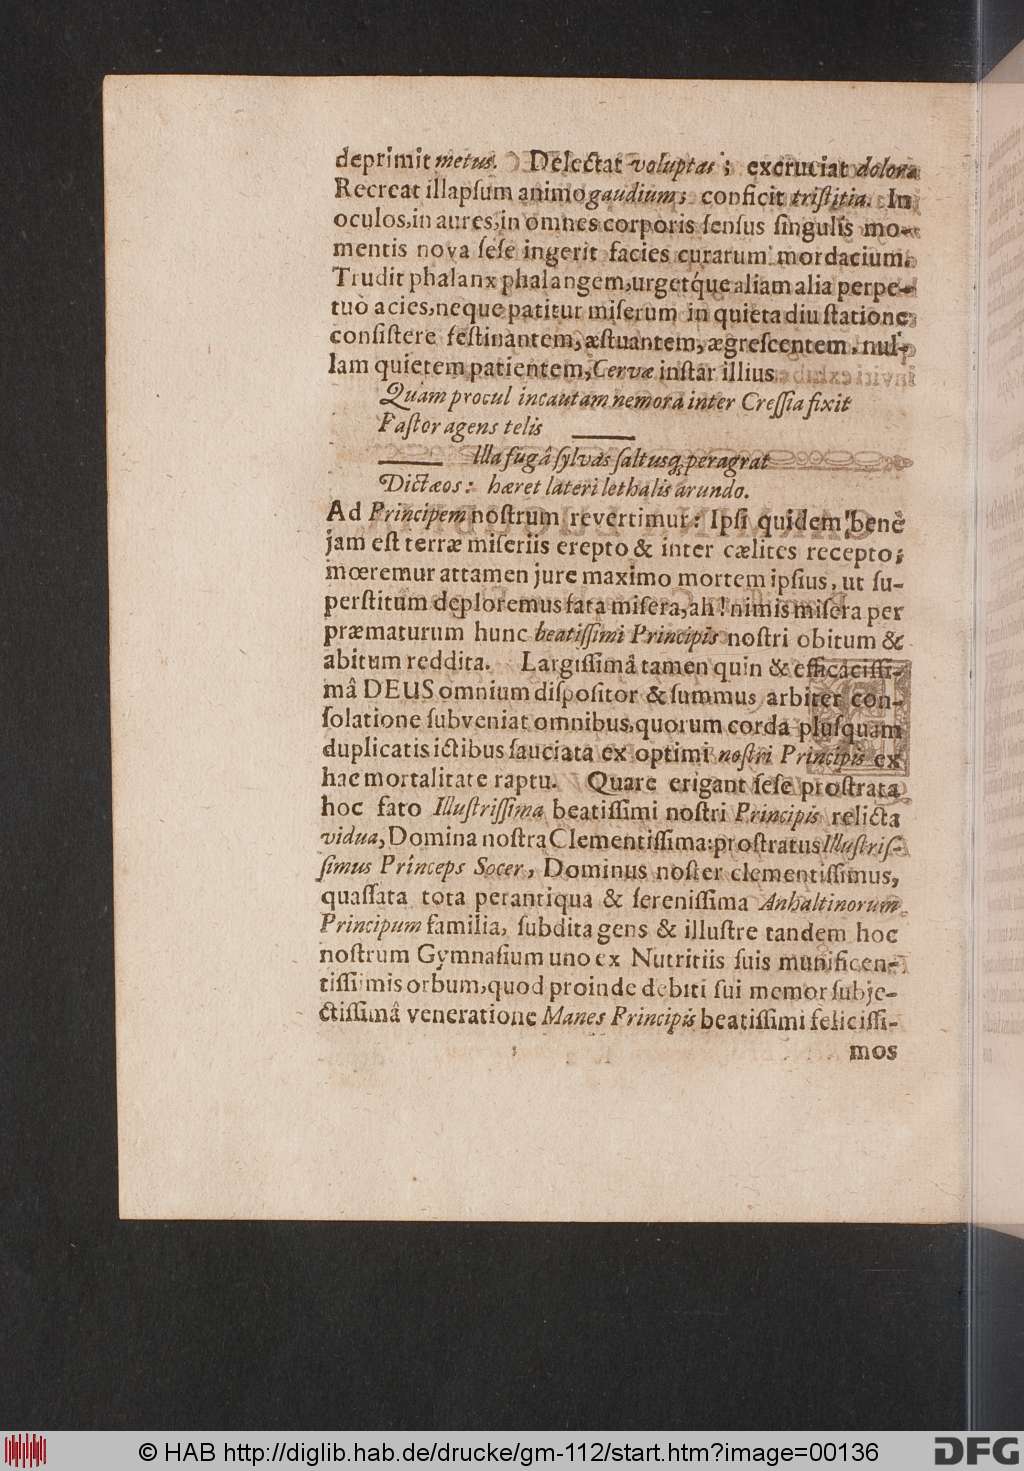 deprimit metus. Delectat voluptas; excruciat dolor.
Recreat illapſum animo gaudium; conficit triſtitia. In
oculos, in aures, in omnes corporis ſenſus ſingulis mo-
mentis nova ſeſe ingerit facies curarum mordacium.
Trudit phalanx phalangem, urgetq́ue aliam alia perpe-
tuò acies, neque patitur miſerum in quieta diu ſtatione
conſiſtere feſtinantem, æſtuantem, ægreſcentem, nul-
lam quietem patientem, Cervæ inſtar illius
Quam procul incautam nemora inter Creſſia fixit
Paſtor agens telis ——
—— Illa fugâ ſylvas ſaltusq; peragrat
Dictæos: hæret lateri lethalis arundo.
Ad Principem noſtrum revertimur: Ipſi quidem benè
jam eſt terræ miſeriis erepto & inter cælites recepto;
mœremur attamen jure maximo mortem ipſius, ut ſu-
perſtitum deploremus fata miſera, ah! nimis miſera per
præmaturum hunc beatiſſimi Principis noſtri obitum &
abitum reddita. Largiſſimâ tamen quin & efficaciſſi-
mâ DEUS omnium diſpoſitor & ſummus arbiter con-
ſolatione ſubveniat omnibus, quorum corda pluſquam
duplicatis ictibus ſauciata ex optimi noſtri Principis ex
hac mortalitate raptu. Quare erigant ſeſe proſtrata
hoc fato Illuſtriſſima beatiſſimi noſtri Principis relicta
vidua, Domina noſtra Clementiſſima: proſtratus Illuſtriſ-
ſimus Princeps Socer, Dominus noſter clementiſſimus,
quaſſata tota perantiqua & ſereniſſima Anhaltinorum
Principum familia, ſubdita gens & illuſtre tandem hoc
noſtrum Gymnaſium uno ex Nutritiis ſuis munificen-
tiſſimis orbum, quod proinde debiti ſui memor ſubje-
ctiſſimâ veneratione Manes Principis beatiſſimi feliciſſi-
mos
© HAB http://diglib.hab.de/drucke/gm-112/start.htm?image=00136
DFG